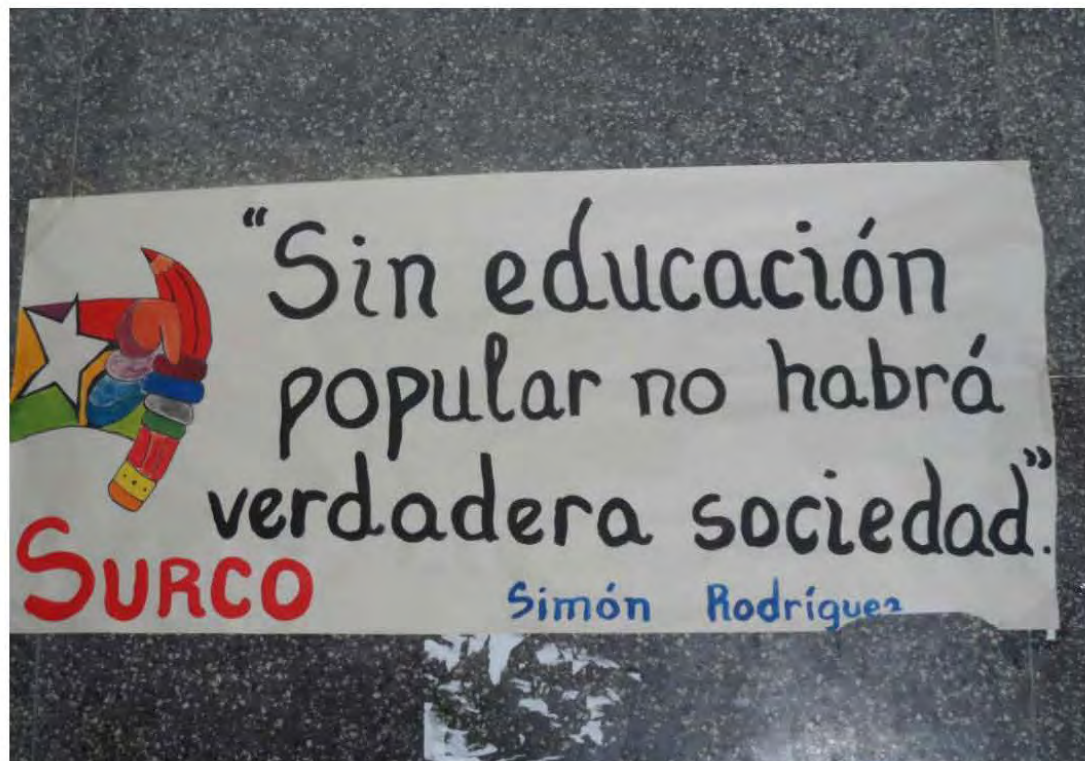 "Sin educación
popular no habrá
verdadera sociedad".
SURCO
Simón Rodríguez